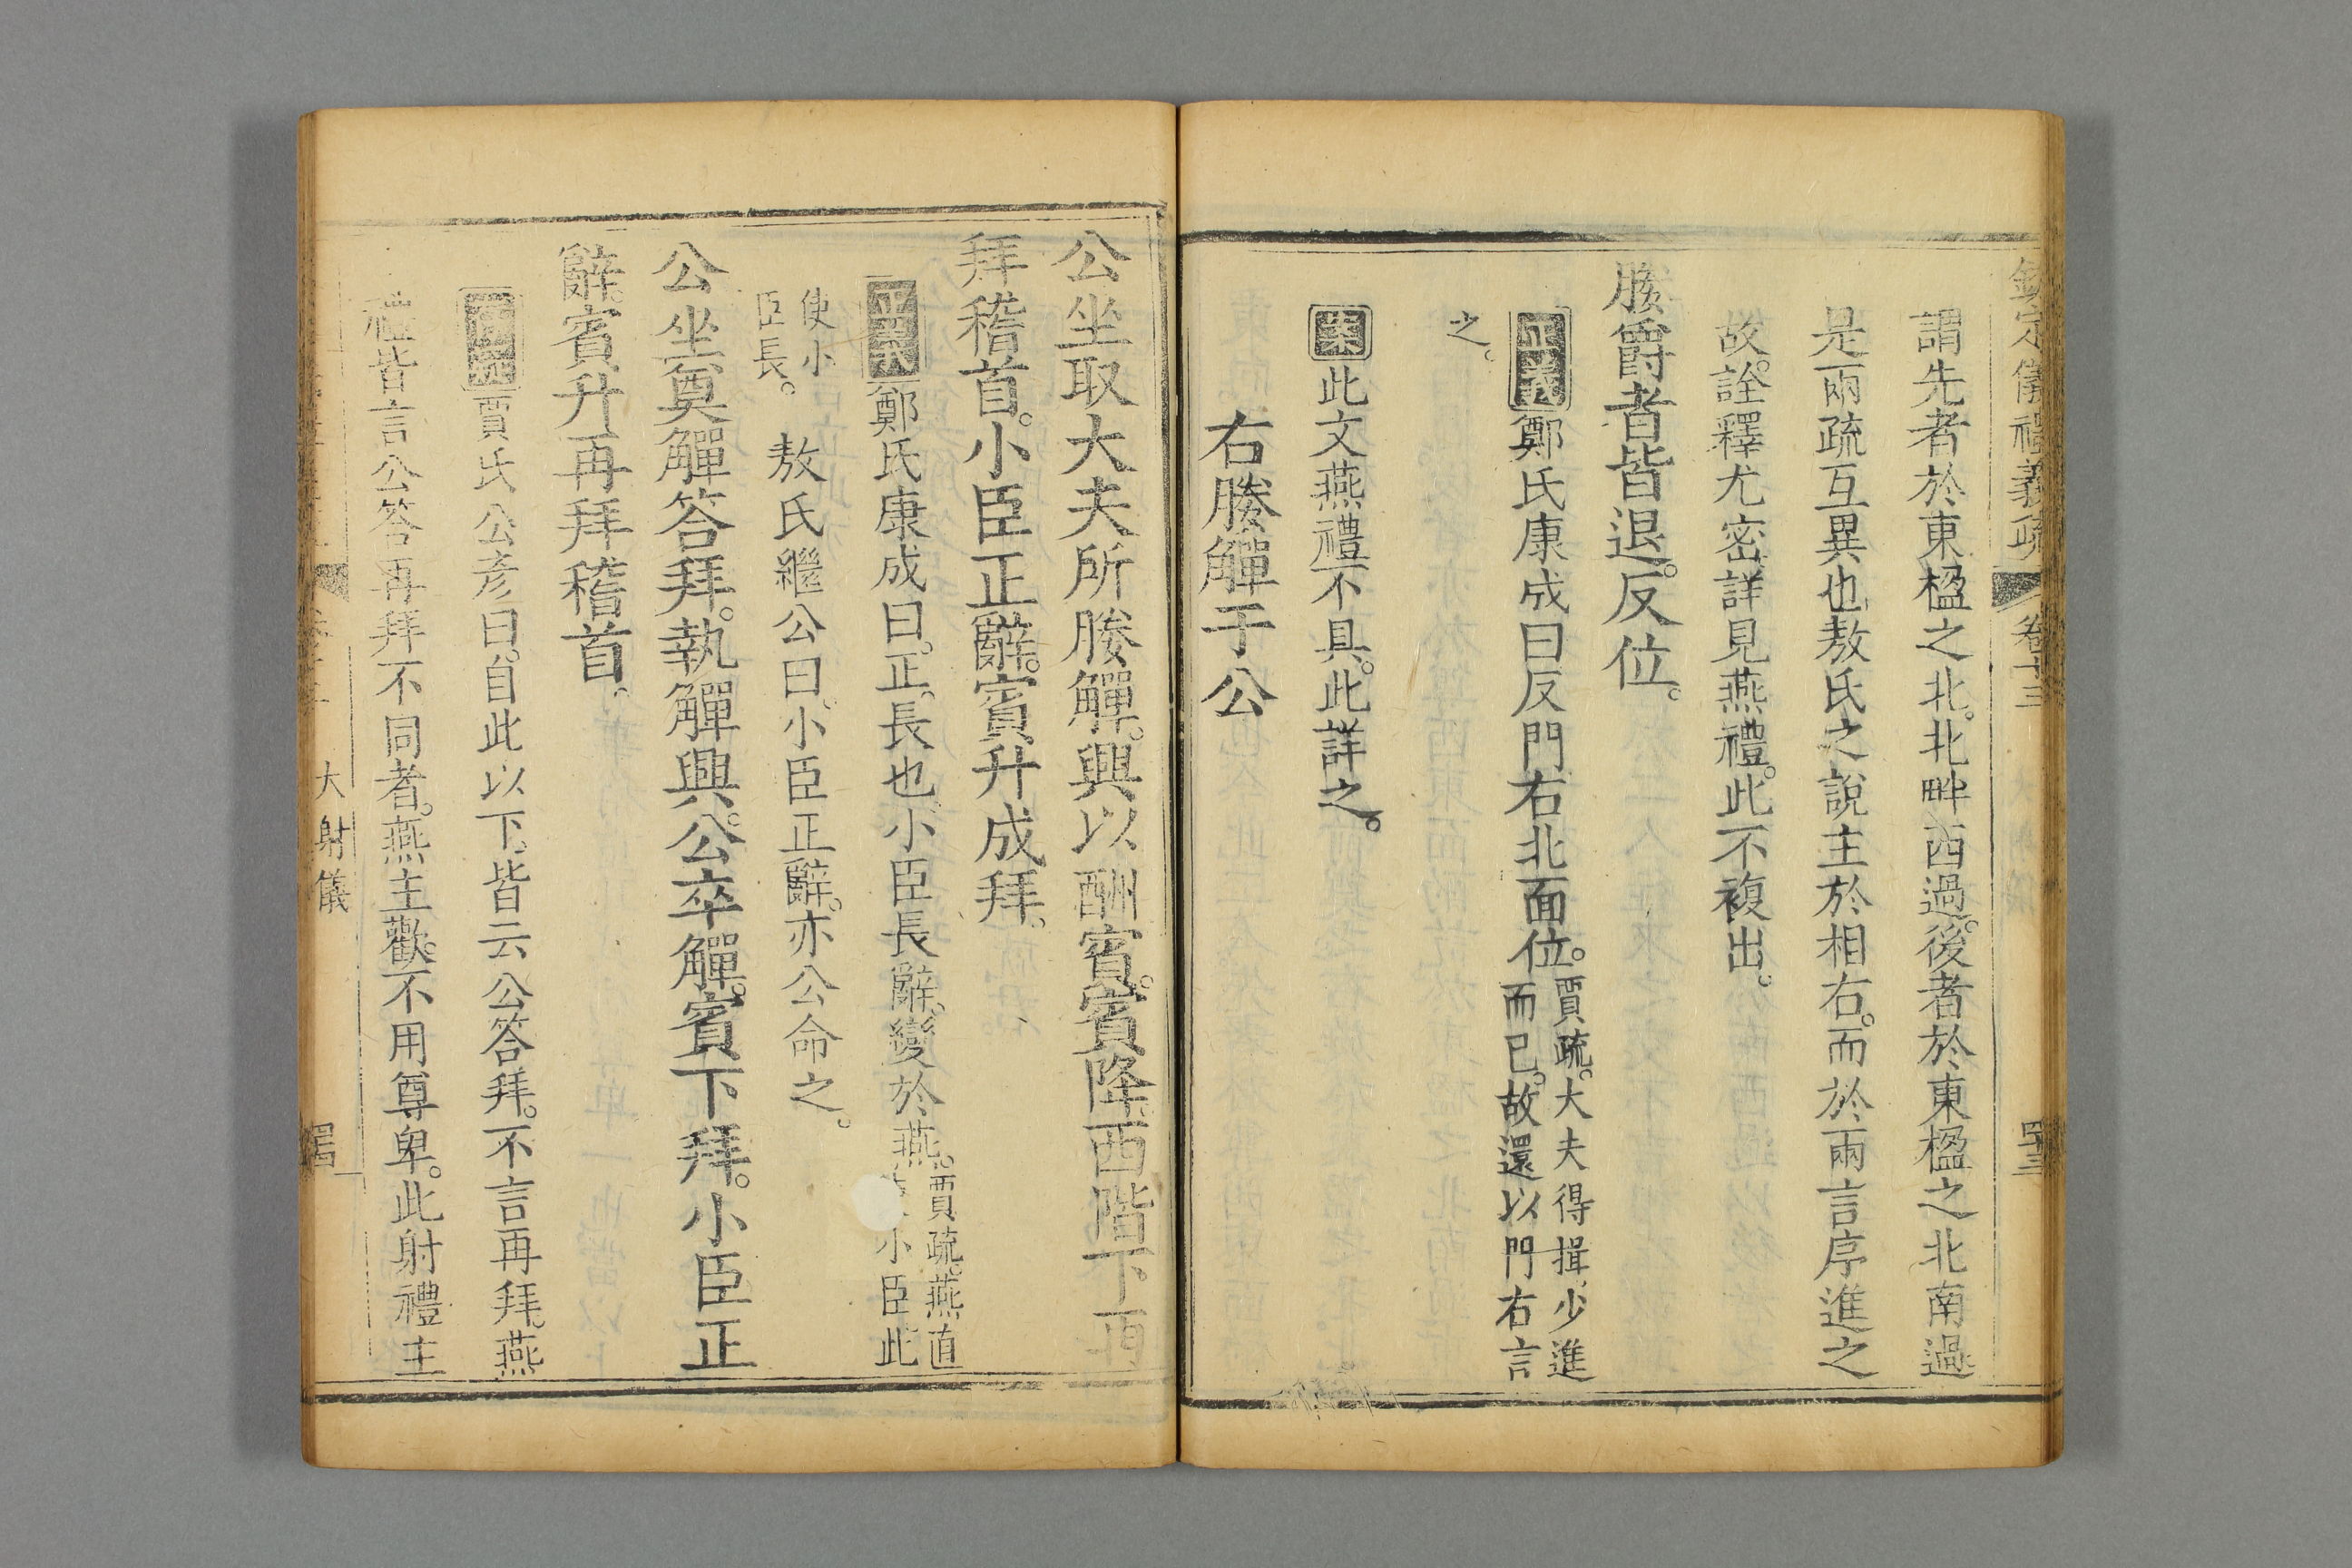 欽定儀禮義疏 卷十三 四十三
謂先者於東楹之北。北畔西過。後者於東楹之北南過
是兩疏互異也敖氏之說主於相右。而於兩言序進之
故。詮釋尤密詳見燕禮。此不複出。
媵爵者皆退。反位。
正義鄭氏康成曰反門右北面位。賈疏。大夫得揖少進
而已。故還以門右言
之。
案此文燕禮不具。此詳之。
右媵觶于公
公坐取大夫所媵觶。興以酬賓。賓降西階下再
拜稽首。小臣正辭。賓升成拜。
正義鄭氏康成曰。正。長也小臣長辭。變於燕。賈疏。燕直
小臣此
使小
臣長。 敖氏繼公曰。小臣正辭。亦公命之。
公坐奠觶答拜。執觶興。公卒觶。賓下拜。小臣正
辭。賓升再拜稽首。
正義賈氏公彥曰。自此以下。皆云公答拜。不言再拜。燕
禮皆言公答再拜不同者。燕主歡。不用尊卑。此射禮主
大射儀